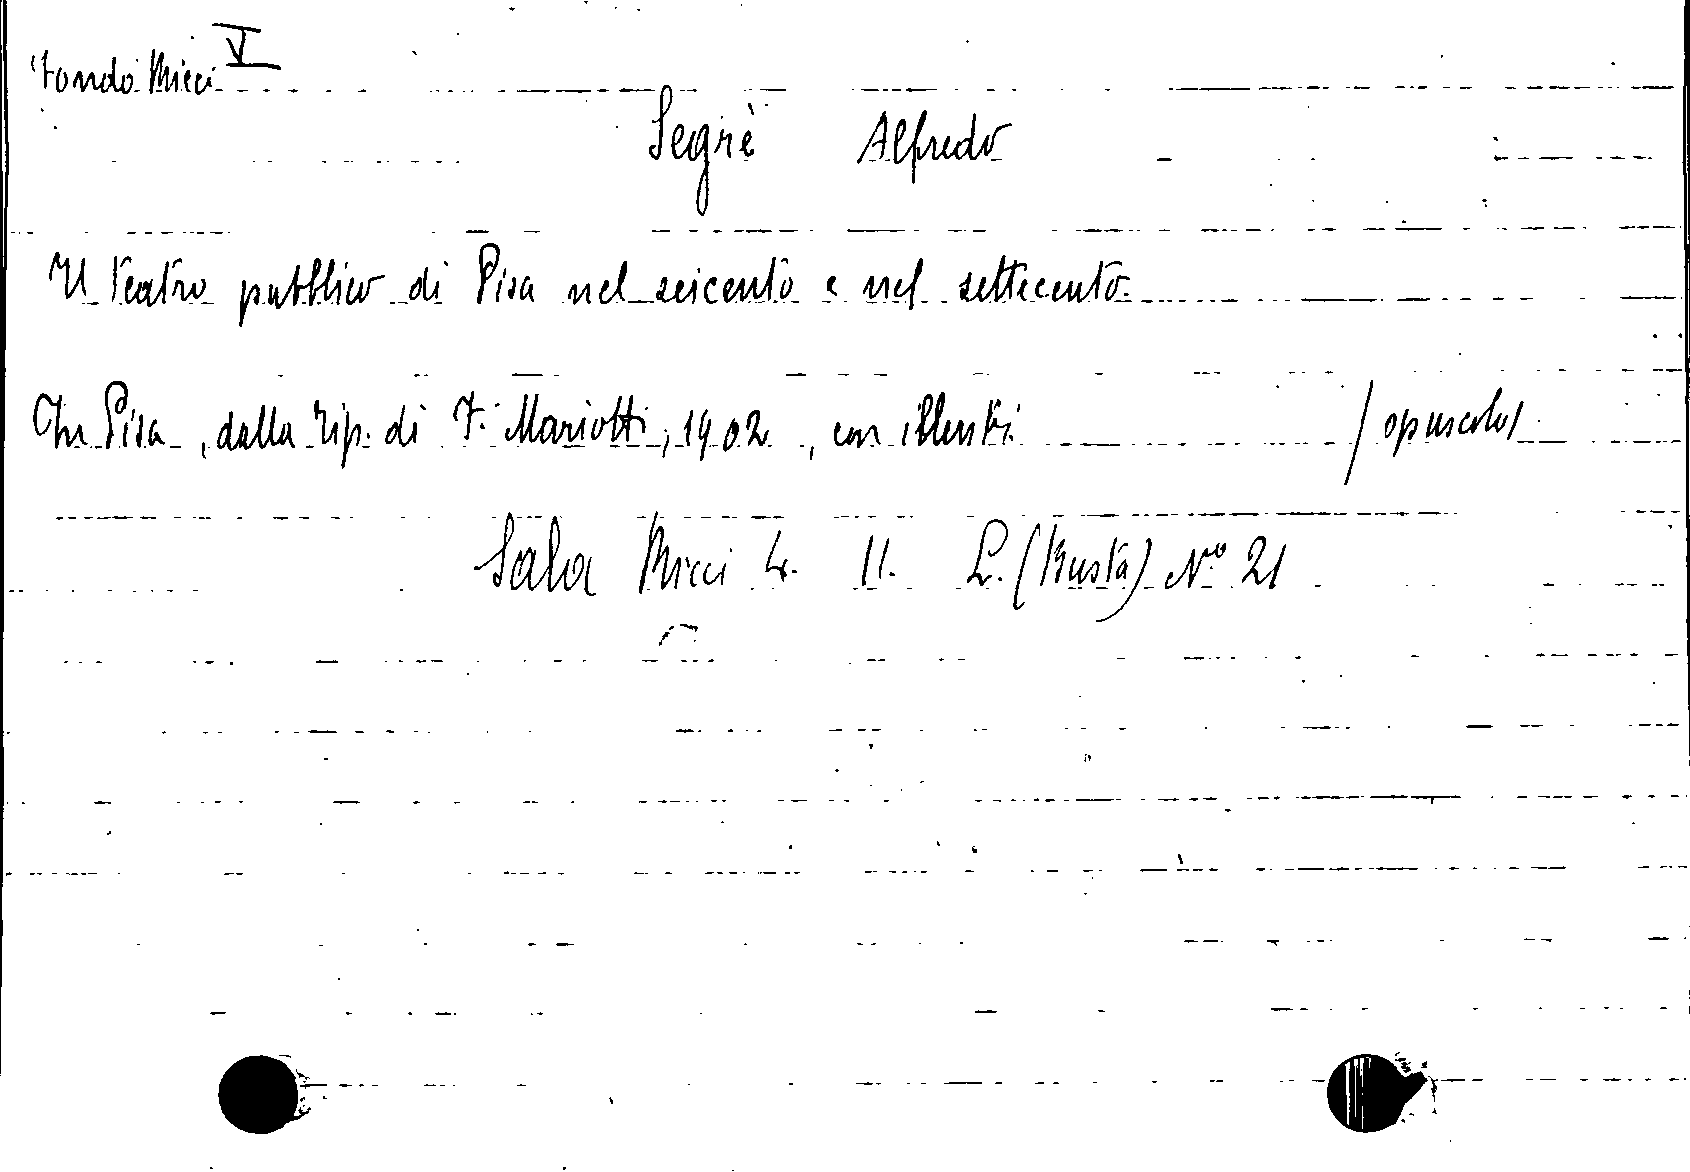 Fondo Micci V
Segrè Alfredo
Il teatro pubblico di Pisa nel seicento e nel settecento.
In Pisa, dalla tip. di F. Mariotti, 1902, con illustr. / opuscolo/
Sala Micci 4. 11. L. (Busta) N.º 21